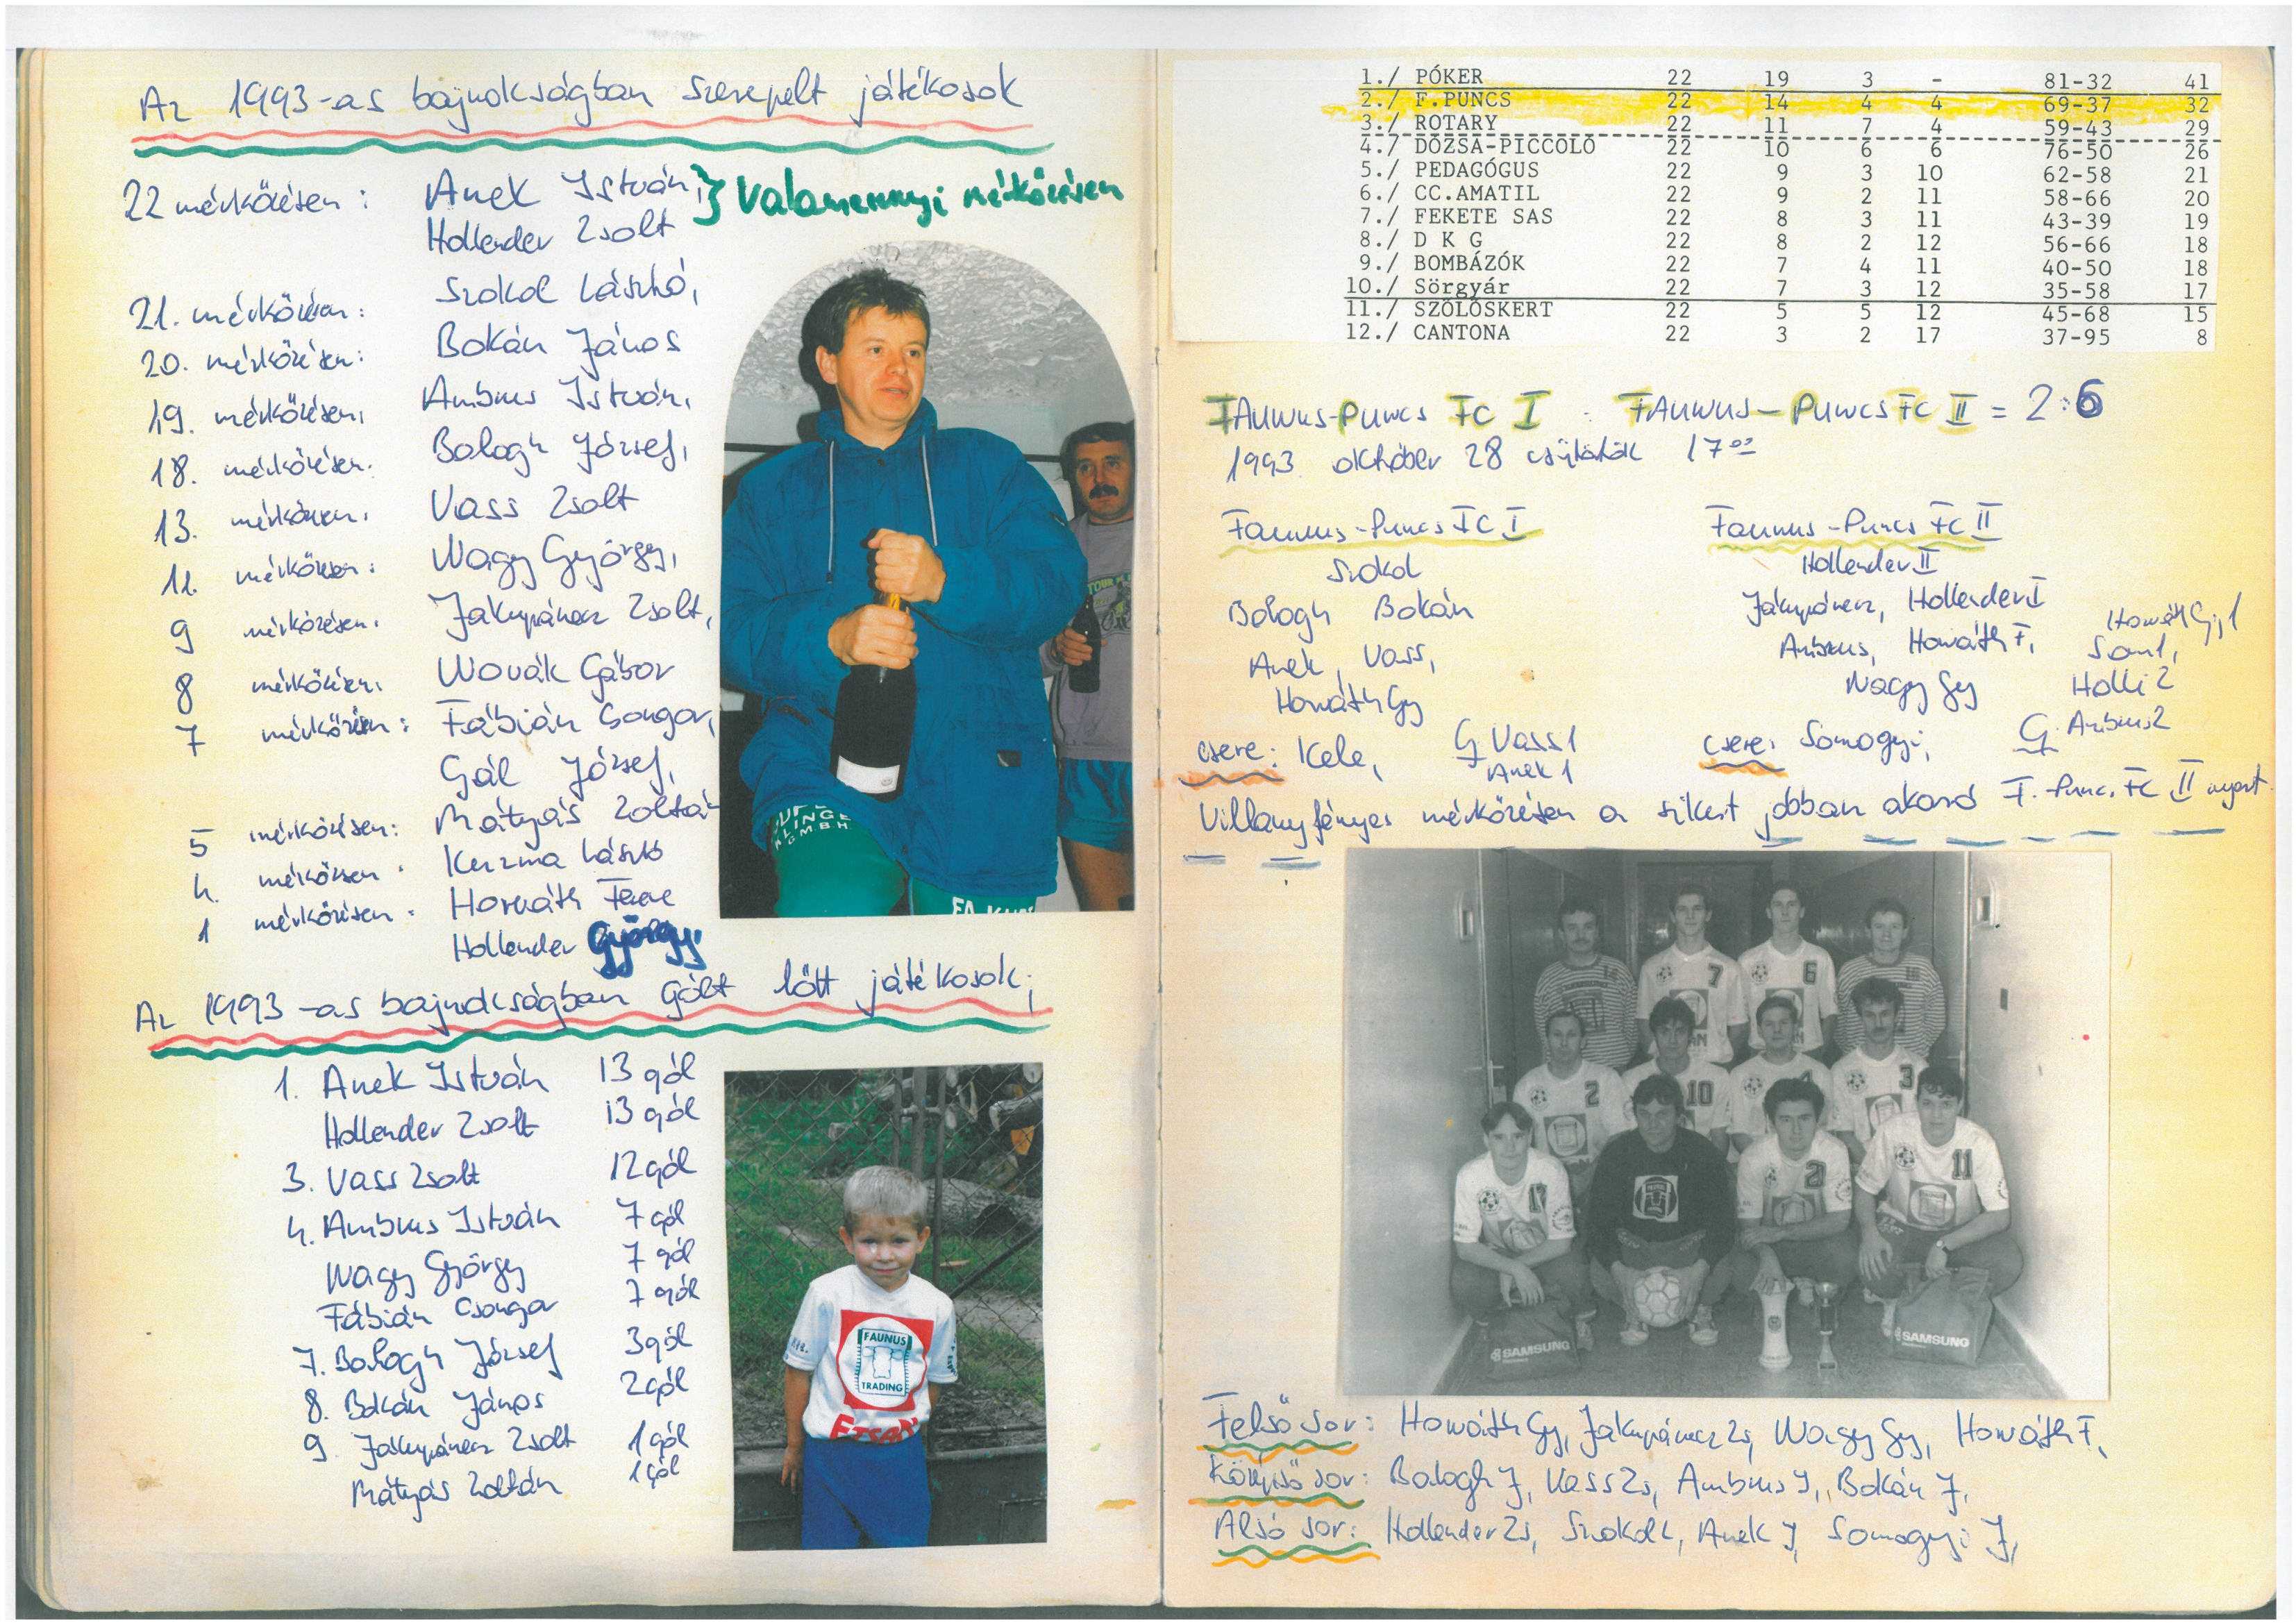 Az 1993-as bajnokságban szerepelt játékosok
22 mérkőzésen: Anek István, } Valamennyi mérkőzésen
Hollender Zsolt
21. mérkőzésen: Szokol László,
20. mérkőzésen: Bokán János
19. mérkőzésen, Ambrus István,
18. mérkőzésen. Balogh József,
13. mérkőzésen. Vass Zsolt
11. mérkőzésen. Nagy György,
9 mérkőzésen. Jakupánecz Zsolt,
8 mérkőzésen. Novák Gábor
7 mérkőzésen: Fábián Csongor,
Gál József,
5 mérkőzésen: Mátyás Zoltán
4. mérkőzésen. Kuzma László
1 mérkőzésen. Horváth Ferenc
Hollender György,
Az 1993-as bajnokságban gólt lőtt játékosok;
1. Anek István 13 gól
Hollender Zsolt 13 gól
3. Vass Zsolt 12 gól
4. Ambrus István 7 gól
Nagy György 7 gól
Fábián Csongor 7 gól
7. Balogh József 3 gól
8. Bokán János 2 gól
9. Jakupánecz Zsolt 1 gól
Mátyás Zoltán 1 gól
FAUNUS
TRADING
1./ PÓKER 22 19 3 - 81-32 41
2./ F.PUNCS 22 14 4 4 69-37 32
3./ ROTARY 22 11 7 4 59-43 29
4./ DÓZSA-PICCOLO 22 10 6 6 76-50 26
5./ PEDAGÓGUS 22 9 3 10 62-58 21
6./ CC.AMATIL 22 9 2 11 58-66 20
7./ FEKETE SAS 22 8 3 11 43-39 19
8./ D K G 22 8 2 12 56-66 18
9./ BOMBÁZÓK 22 7 4 11 40-50 18
10./ Sörgyár 22 7 3 12 35-58 17
11./ SZŐLŐSKERT 22 5 5 12 45-68 15
12./ CANTONA 22 3 2 17 37-95 8
FAUNUS-PUNCS FC I - FAUNUS-PUNCS FC II = 2:6
1993. október 28 csütörtök 17 00
Faunus-Puncs FC I Faunus-Puncs FC II
Szokol Hollender II
Balogh Bokán Jakupánecz, Hollender I
Anek, Vass, Ambrus, Horváth F,
Horváth Gy Nagy Gy
Horváth Gy, 1
Som 1,
Holli 2
csere: Kele, G Vass 1 csere: Somogyi, G. Ambrus 2
Anek 1
Villanyfényes mérkőzésen a sikert jobban akaró F. Puncs FC II nyert.
7 6
2 10 4 3
21 11
SAMSUNG
SAMSUNG
Felső sor: Horváth Gy, Jakupánecz Zs, Nagy Gy, Horváth F,
Középső sor: Balogh J, Vass Zs, Ambrus I, Bokán J,
Alsó sor: Hollender Zs, Szokol L, Anek I, Somogyi J,